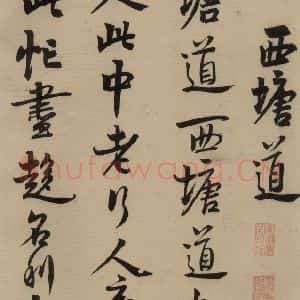 西塘道
塘道一西塘道
人此中老行人
此忙畫趨名利
shufawang.cn